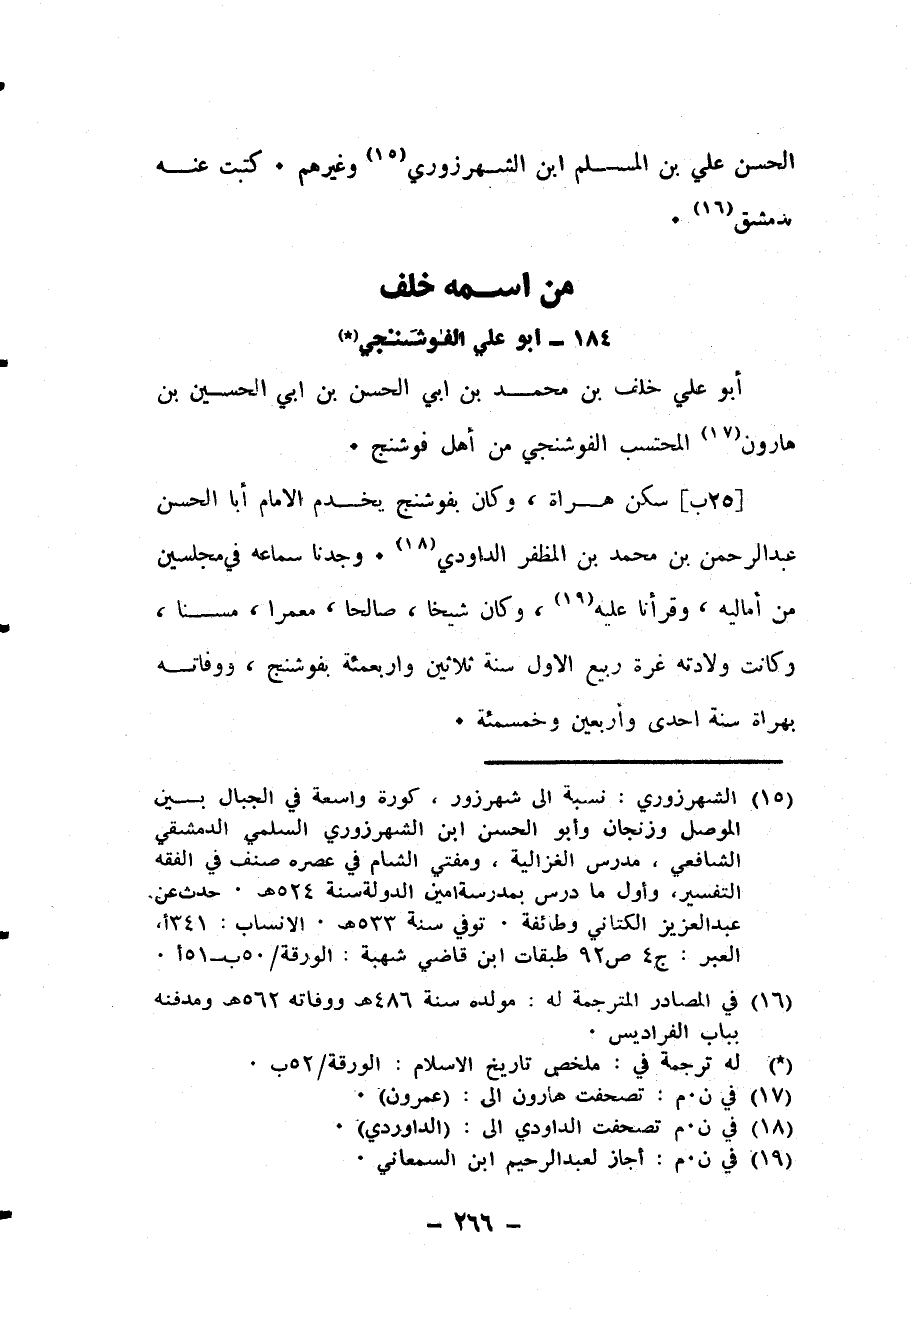 الحسن علي بن المسلم ابن الشهرزوري(١٥) وغيرهم . كتبت عنه
بدمشق(١٦) .
من اسمه خلف
١٨٤ - أبو علي الفوشنجي(*)
أبو علي خلف بن محمد بن ابي الحسن بن ابي الحسين بن
هارون(١٧) المحتسب الفوشنجي من أهل فوشنج .
[٢٥ب] سكن هراة ، وكان بفوشنج يخدم الامام أبا الحسن
عبدالرحمن بن محمد بن المظفر الداودي(١٨) . وجدنا سماعه في مجلسين
من أماليه ، وقرأنا عليه(١٩) ، وكان شيخا ، صالحا ، معمرا ، مسنا ،
وكانت ولادته غرة ربيع الاول سنة ثلاثين واربعمئة بفوشنج ، ووفاته
بهراة سنة احدى وأربعين وخمسمئة .
(١٥) الشهرزوري : نسبة الى شهرزور ، كورة واسعة في الجبال بين
الموصل وزنجان وأبو الحسن ابن الشهرزوري السلمي الدمشقي
الشافعي ، مدرس الغزالية ، ومفتي الشام في عصره صنف في الفقه
التفسير، وأول ما درس بمدرسة امين الدولة سنة ٥٢٤هـ . حدث عن
عبدالعزيز الكتاني وطائفة . توفي سنة ٥٣٣هـ . الانساب : ٣٤١أ،
العبر : ج٤ ص٩٢ طبقات ابن قاضي شهبة : الورقة/٥٠ب-٥١أ .
(١٦) في المصادر المترجمة له : مولده سنة ٤٨٦هـ ووفاته ٥٦٢هـ ومدفنه
بباب الفراديس .
(*) له ترجمة في : ملخص تاريخ الاسلام : الورقة/٥٢ب .
(١٧) في ن.م : تصحفت هارون الى : (عمرون) .
(١٨) في ن.م تصحفت الداودي الى : (الداوردي) .
(١٩) في ن.م : أجاز لعبدالرحيم ابن السمعاني .
- ٢٦٦ -